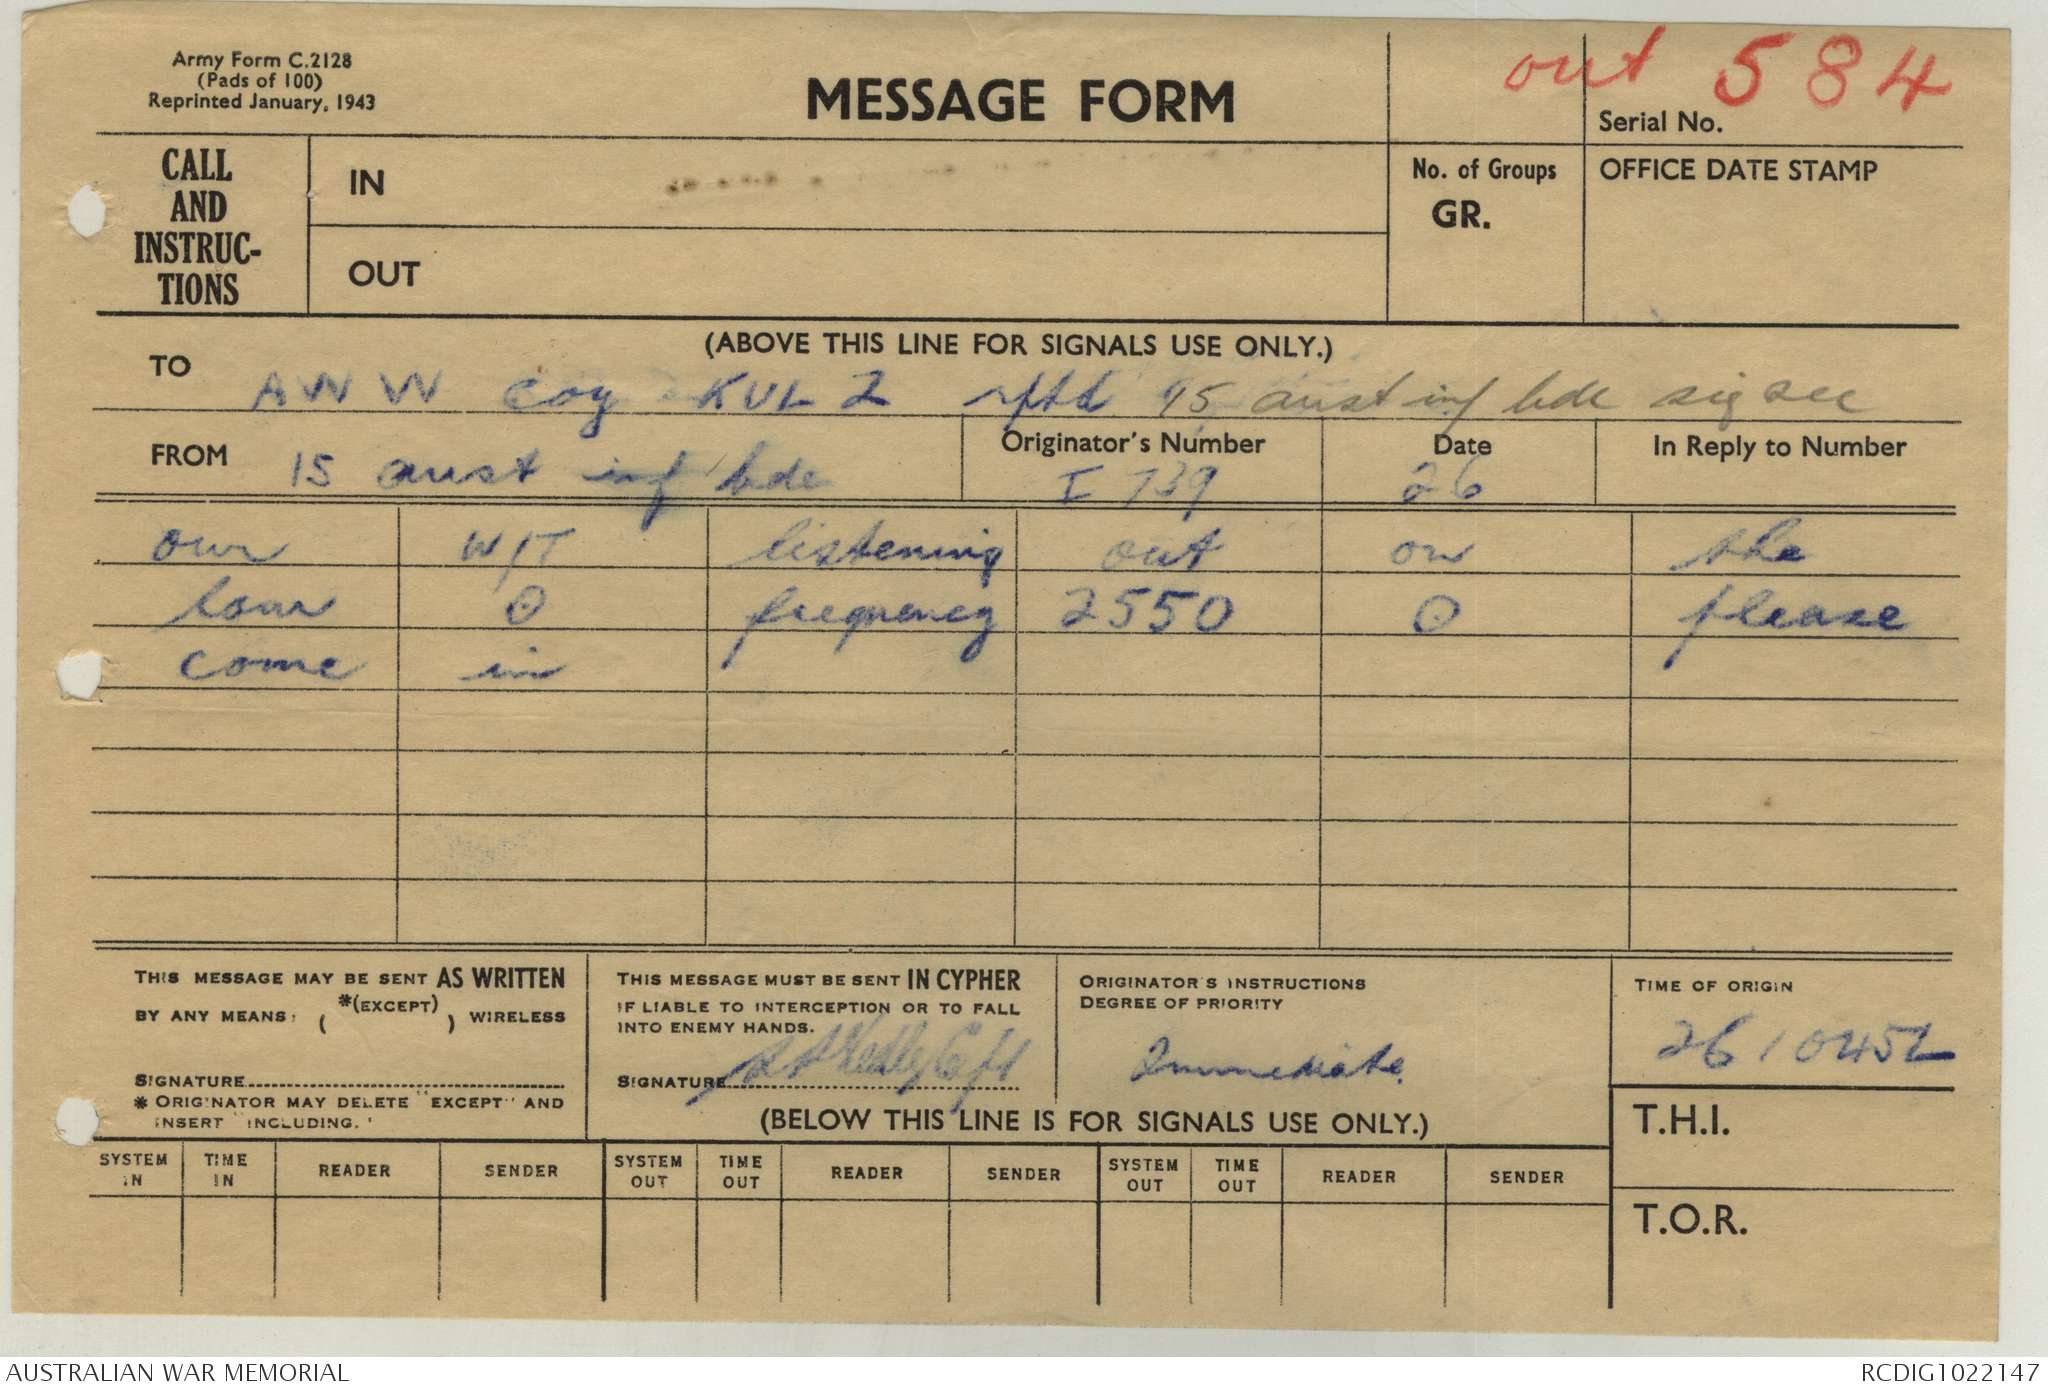 Army Form C.2128
(Pads of 100)
Reprinted January, 1943
MESSAGE FORM
out 584
Serial No.
CALL
AND
INSTRUC-
TIONS
IN
OUT
No. of Groups
GR.
OFFICE DATE STAMP
(ABOVE THIS LINE FOR SIGNALS USE ONLY.)
TO
AWW Coy KUL 2 rptd 15 aust inf bde sig sec
FROM
15 aust inf bde
Originator's Number
I 739
Date
26
In Reply to Number
our W/T listening out on the
lour O frequency 2550 O please
come in
THIS MESSAGE MAY BE SENT AS WRITTEN
BY ANY MEANS: ( *(EXCEPT) ) WIRELESS
SIGNATURE
* ORIGINATOR MAY DELETE "EXCEPT" AND
INSERT "INCLUDING."
THIS MESSAGE MUST BE SENT IN CYPHER
IF LIABLE TO INTERCEPTION OR TO FALL
INTO ENEMY HANDS.
SIGNATURE
ORIGINATOR'S INSTRUCTIONS
DEGREE OF PRIORITY
Immediate.
TIME OF ORIGIN
261045L
(BELOW THIS LINE IS FOR SIGNALS USE ONLY.)
T.H.I.
T.O.R.
SYSTEM IN TIME IN READER SENDER SYSTEM OUT TIME OUT READER SENDER SYSTEM OUT TIME OUT READER SENDER
AUSTRALIAN WAR MEMORIAL
RCDIG1022147